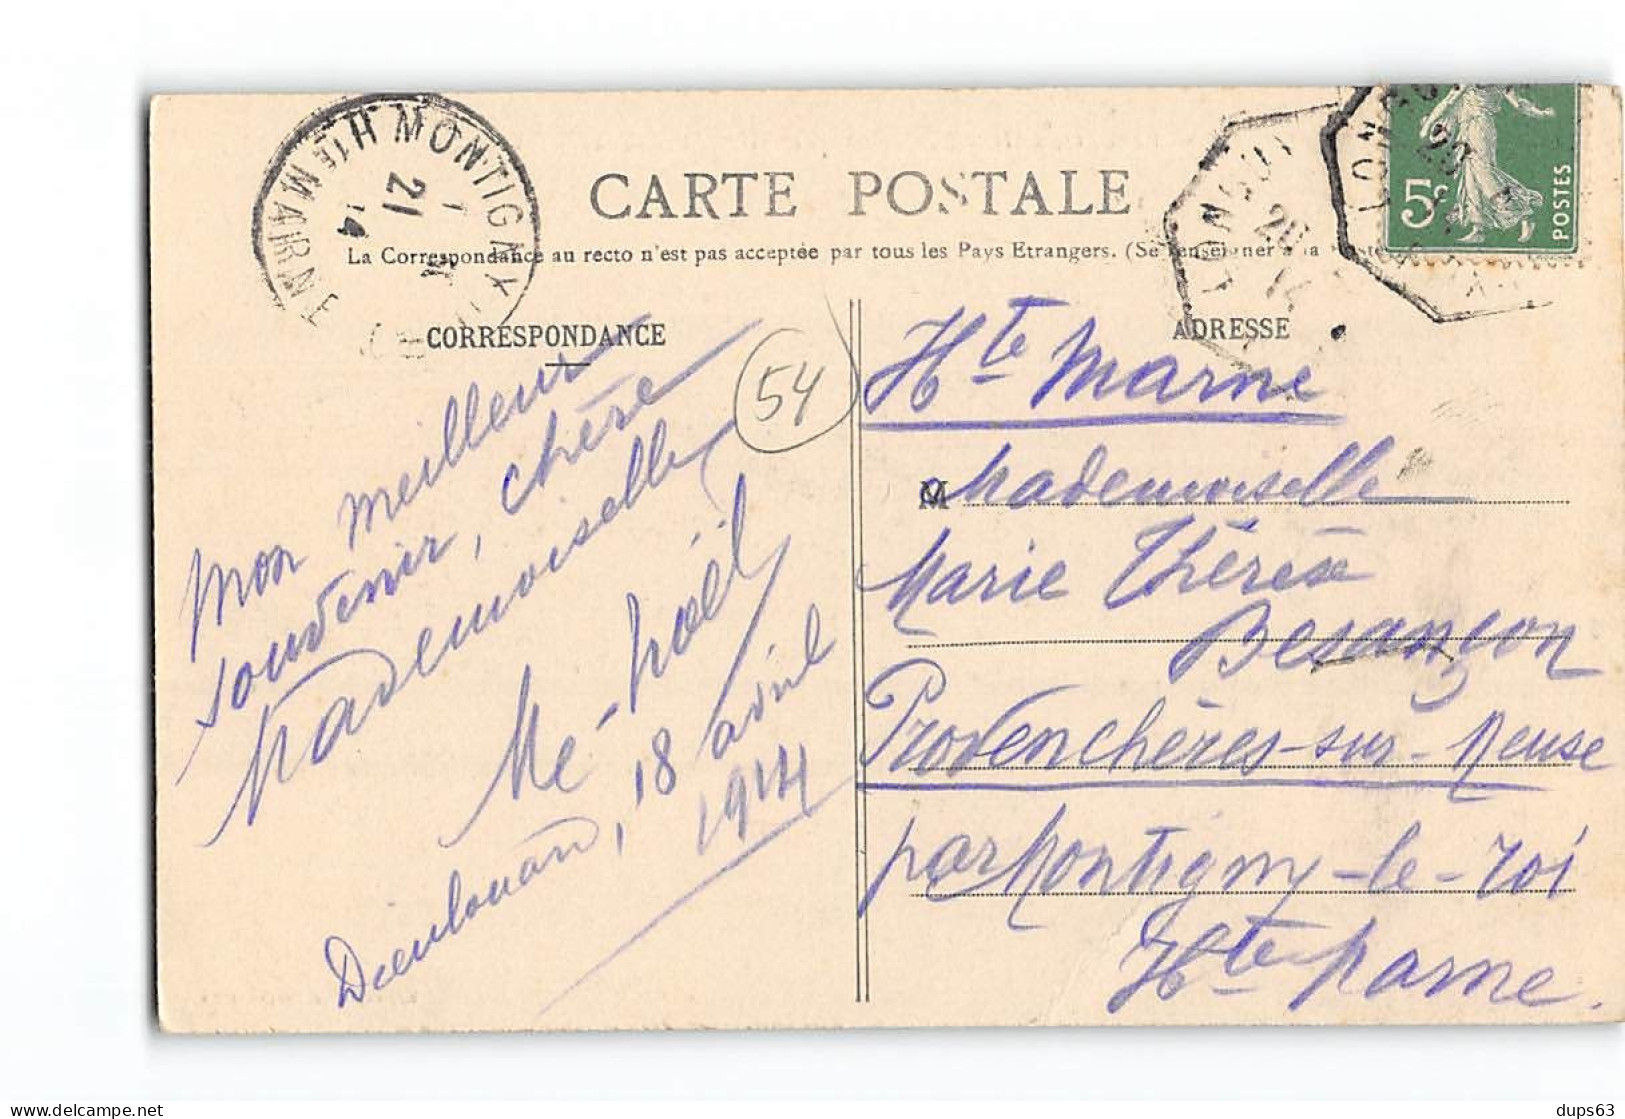 CARTE POSTALE
La Correspondance au recto n'est pas acceptée par tous les Pays Etrangers. (Se renseigner à la Poste)
MONTIGNY
Hte MARNE
21
14
LONGUY
20
14
LONGUY
20
5c
POSTES
CORRESPONDANCE
54
Mon meilleur
souvenir, chère
Mademoiselle
Me-Noël
Dieulouard, 18 avril
1914
ADRESSE
Hte Marne
M Mademoiselle
Marie Thérèse
Besançon
Provenchères-sur-Meuse
par Montigny-le-roi
Hte Marne.
dups63